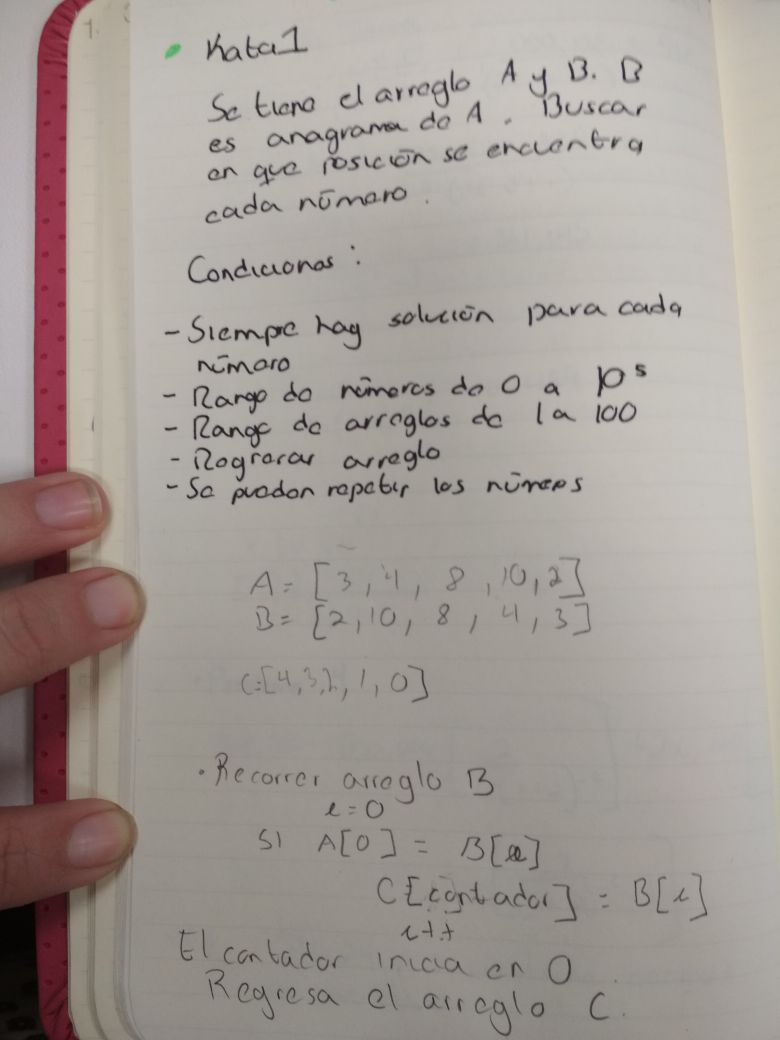 Kata1
Se tiene el arreglo A y B. B
es anagrama de A. Buscar
en que posición se encuentra
cada número.
Condiciones:
- Siempre hay solución para cada
número
- Rango de números de 0 a 10⁵
- Rango de arreglos de 1 a 100
- Regresar arreglo
- Se pueden repetir los números
A = [3, 4, 8, 10, 2]
B = [2, 10, 8, 4, 3]
C=[4,3,2,1,0]
· Recorrer arreglo B
i=0
Si A[0] = B[i]
C[contador] = B[i]
i++
El contador inicia en 0.
Regresa el arreglo C.